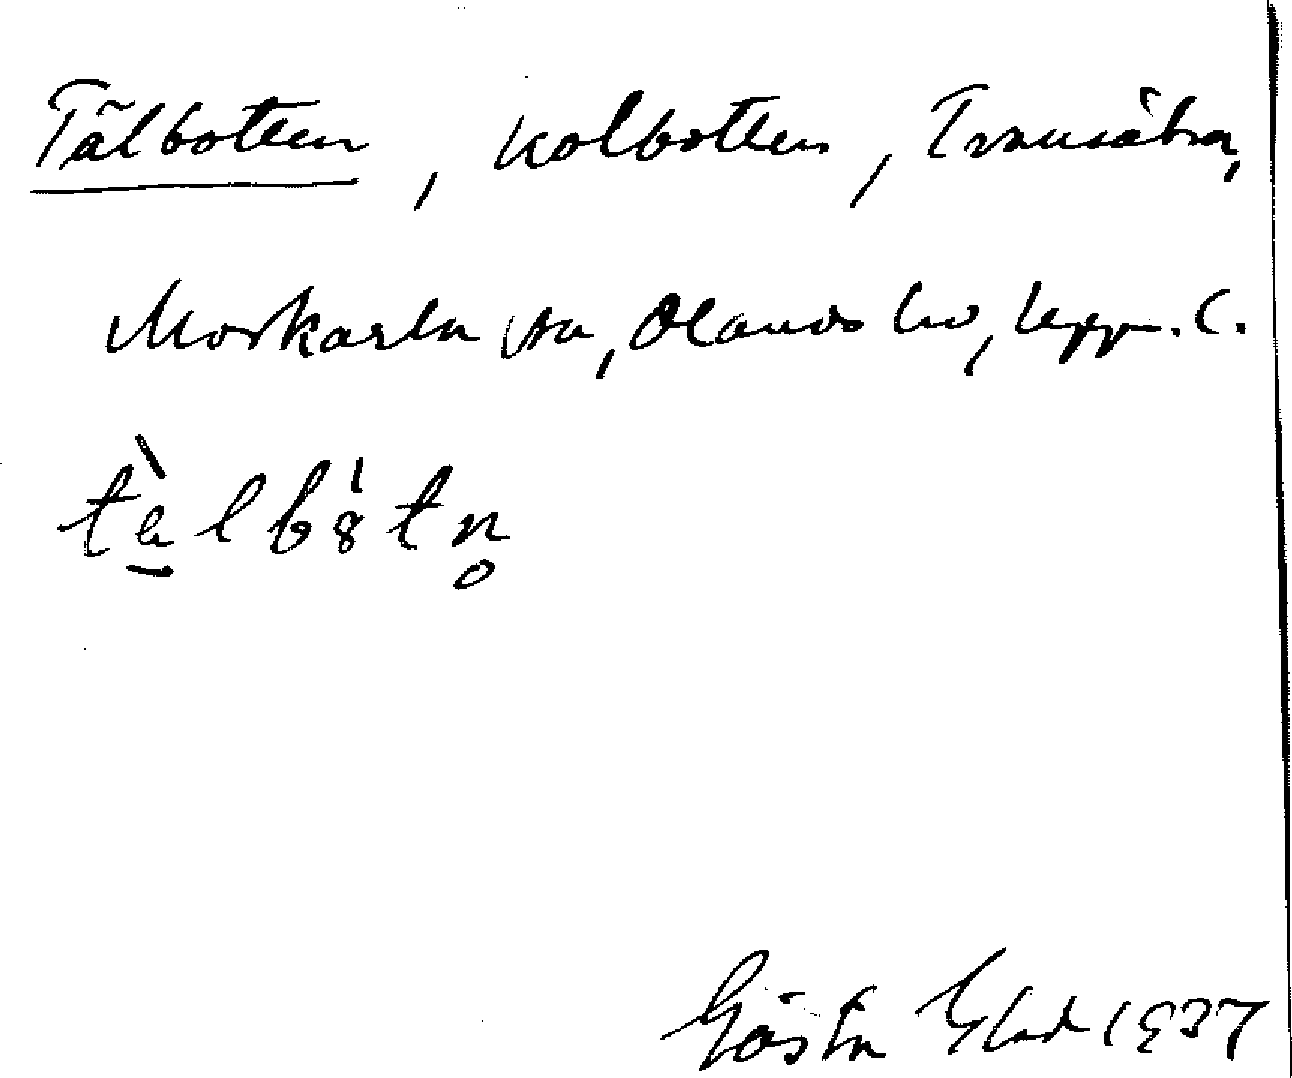 Tälbotten, kolbotten, Transätra,
Morkarla sn, Olands hd, Uppl. C.
tàlbȣ̍tn̥
Gösta 1937